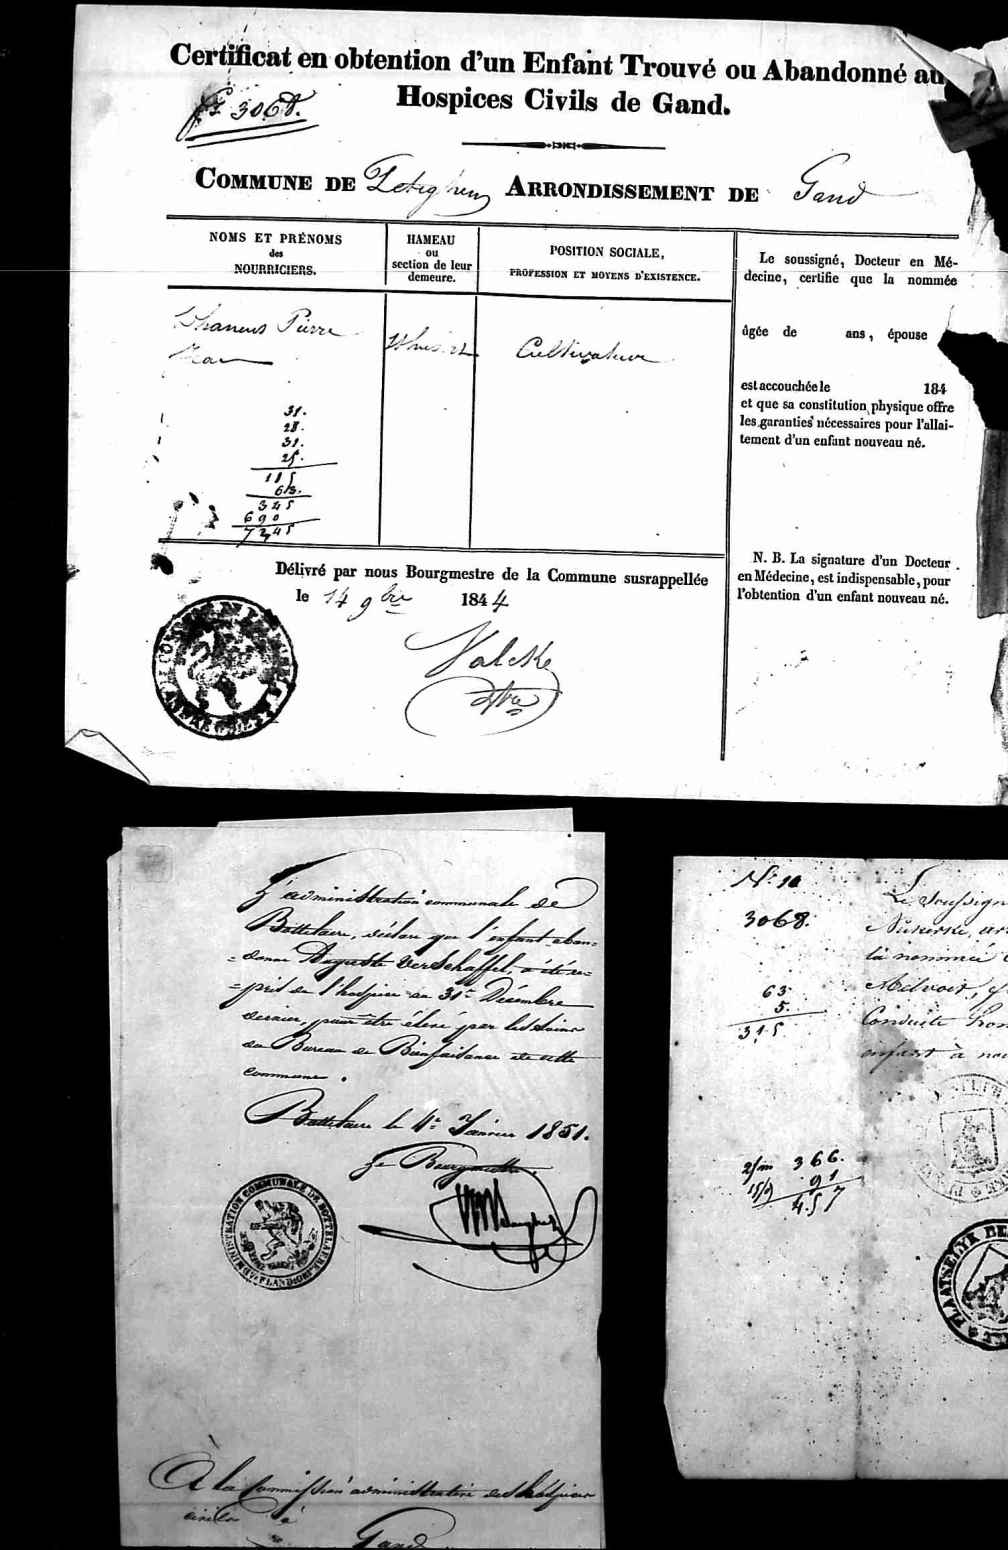 Certificat en obtention d'un Enfant Trouvé ou Abandonné au
Hospices Civils de Gand.
3068.
COMMUNE DE Leteghem ARRONDISSEMENT DE Gand
NOMS ET PRÉNOMS
des
NOURRICIERS.
HAMEAU
ou
section de leur
demeure.
POSITION SOCIALE,
PROFESSION ET MOYENS D'EXISTENCE.
Pierre
Jean
Cultivateur
31.
28.
31.
25.
115
63.
345
690
7245
Le soussigné, Docteur en Mé-
decine, certifie que la nommée
âgée de ans, épouse
est accouchée le 184
et que sa constitution physique offre
les garanties nécessaires pour l'allai-
tement d'un enfant nouveau né.
N. B. La signature d'un Docteur
en Médecine, est indispensable, pour
l'obtention d'un enfant nouveau né.
Délivré par nous Bourgmestre de la Commune susrappellée
le 14 9bre 1844
Valcke
L'administration communale de
Bottelaere, déclare que l'enfant aban-
=donné Auguste Verschaffel, a été re-
=pris de l'hospice au 31e Décembre
dernier, pour être élevé par les soins
du Bureau de Bienfaisance de cette
commune.
Bottelaere le 4e Janvier 1851.
Le Bourgmestre
ADMINISTRATION COMMUNALE DE BOTTELAERE
FLAND: OR:
À la Commission administrative des hospices
civils à
Gand
No 10
3068.
63
5.
315
366.
91
457
Le soussign
la nommée
Conduite
enfant à nou
PLAATSELYK BE